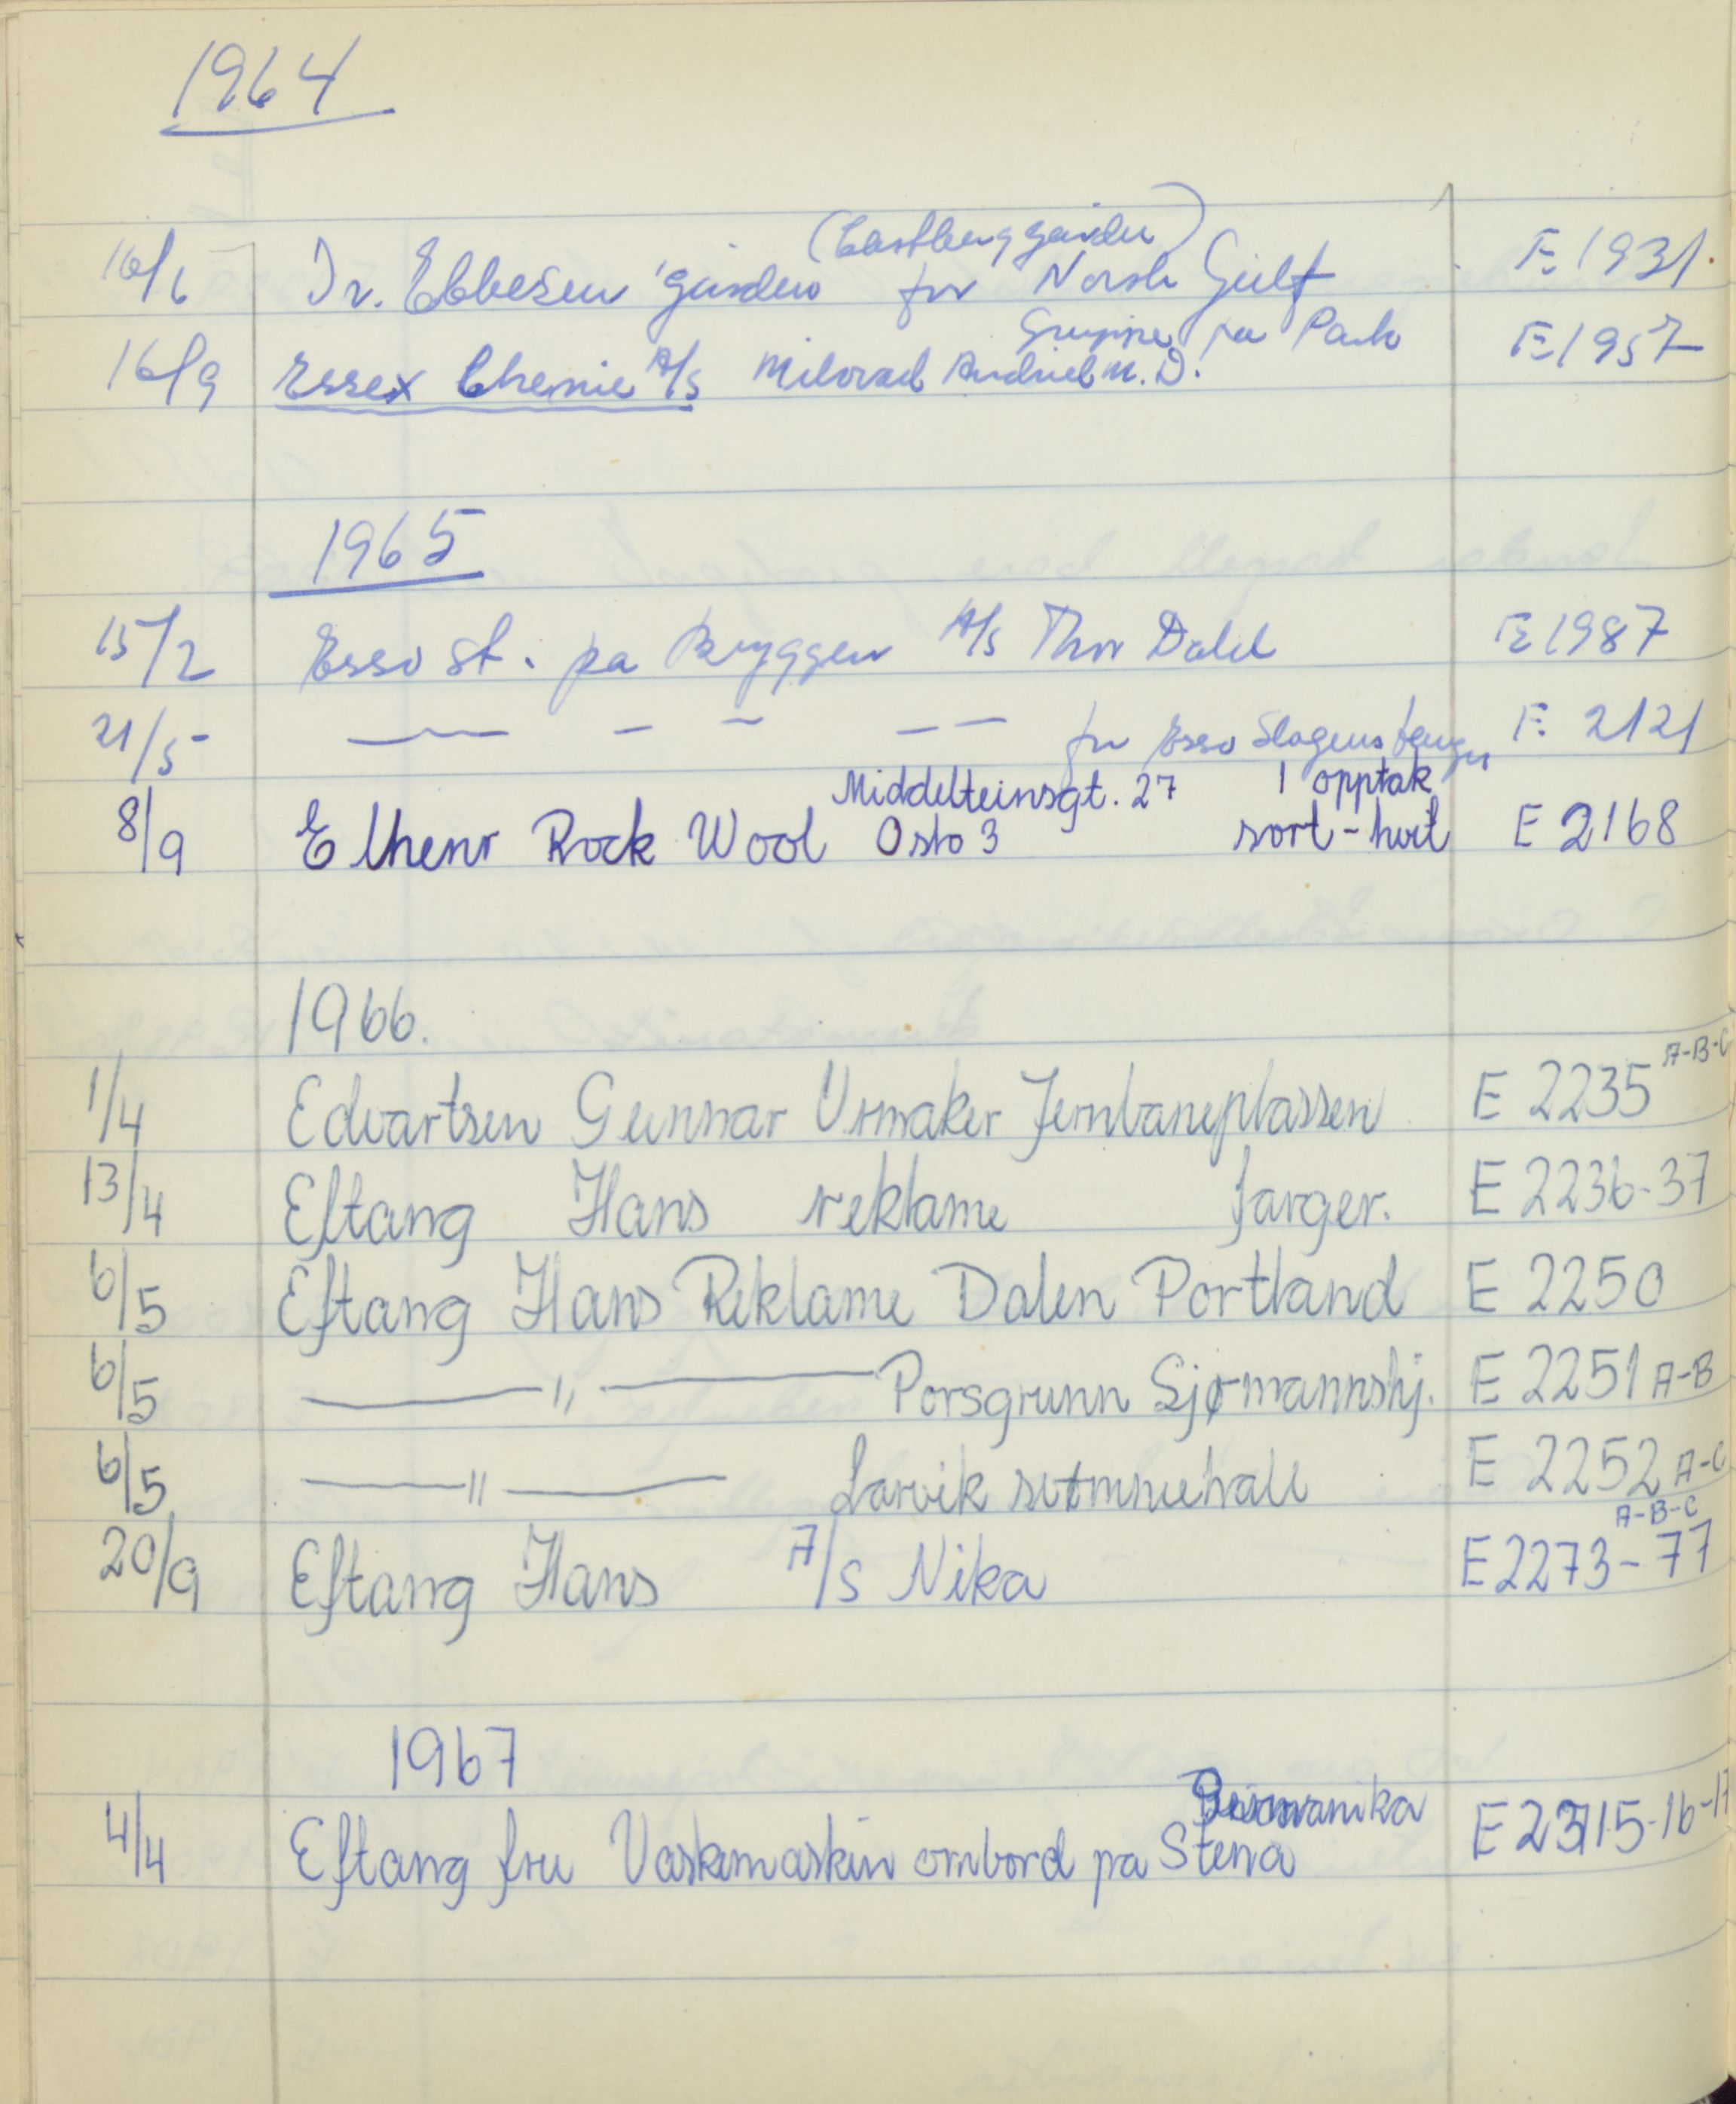 1964
(Castberggården)
16/6 Dr. Ebbesen gården for Norsk Gulf E 1931.
Gruppe på Park
16/9 Essex Chemie A/S Milorad M.D. E 1957
1965
15/2 Esso st. på Bryggen A/S Thor Dahl E 1987
21/5 — - - — — for Esso Slagenstangen E 2121
Middelteinsgt. 27 1 opptak
8/9 Elhenr Rock Wool Oslo 3 sort-hvit E 2168
1966.
1/4 Edvartsen Gunnar Urmaker Jernbaneplassen E 2235 A-B-C
13/4 Eftang Hans reklame farger. E 2236-37
6/5 Eftang Hans Reklame Dalen Portland E 2250
6/5 —— " —— Porsgrunn Sjømannshj. E 2251 A-B
6/5 —— " —— Larvik svømmehall E 2252 A-C
A-B-C
20/9 Eftang Hans A/S Nika E 2273-77
1967
4/4 Eftang fru Vaskemaskin ombord på Stena E 2315-16-17